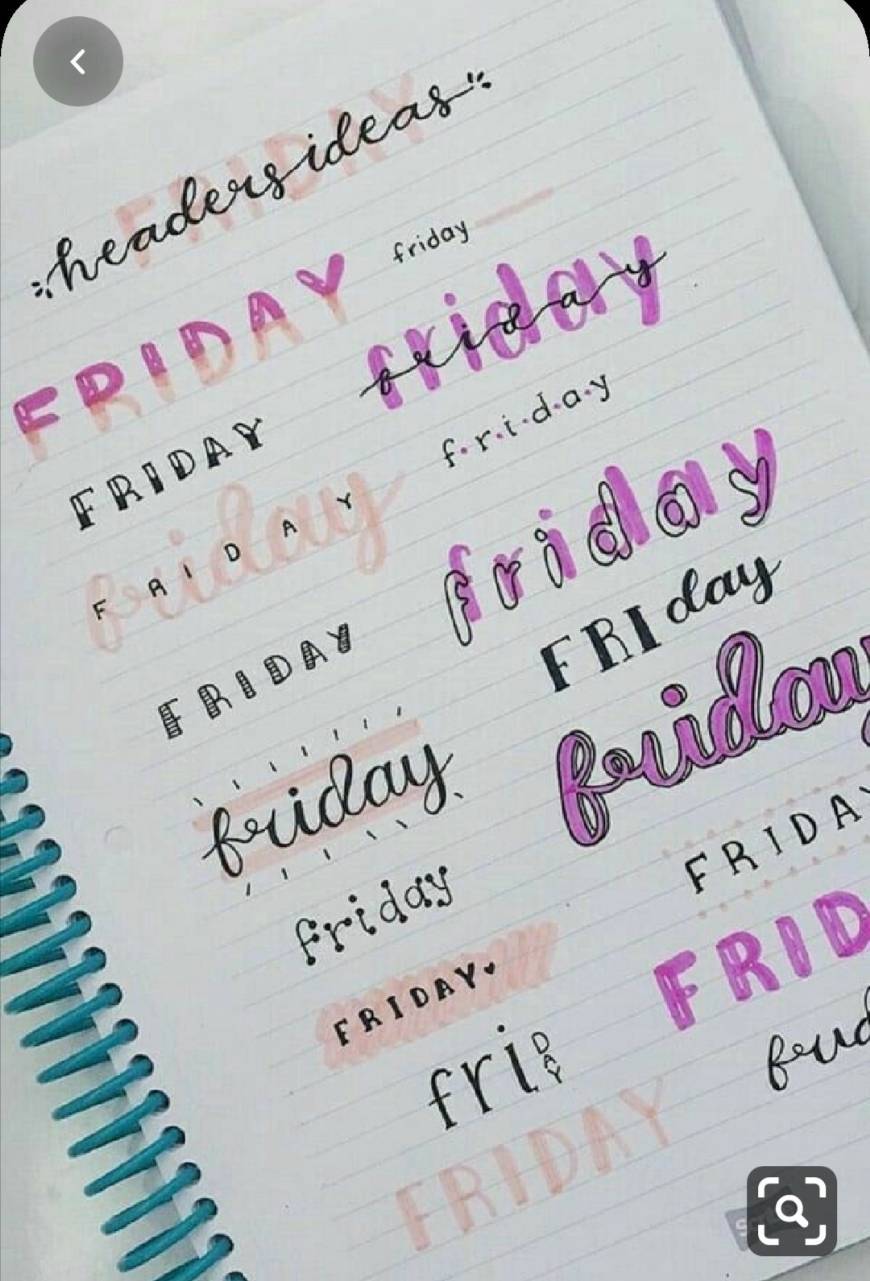 FRIDAY
headers ideas
friday
FRIDAY
friday
friday
FRIDAY
f.r.i.d.a.y
friday
FRIDAY
friday
friday
FRIDAY
FRIday
friday
friday
FRIDAY
friday
FRIDAY
FRID
friDAY
frid
FRIDAY